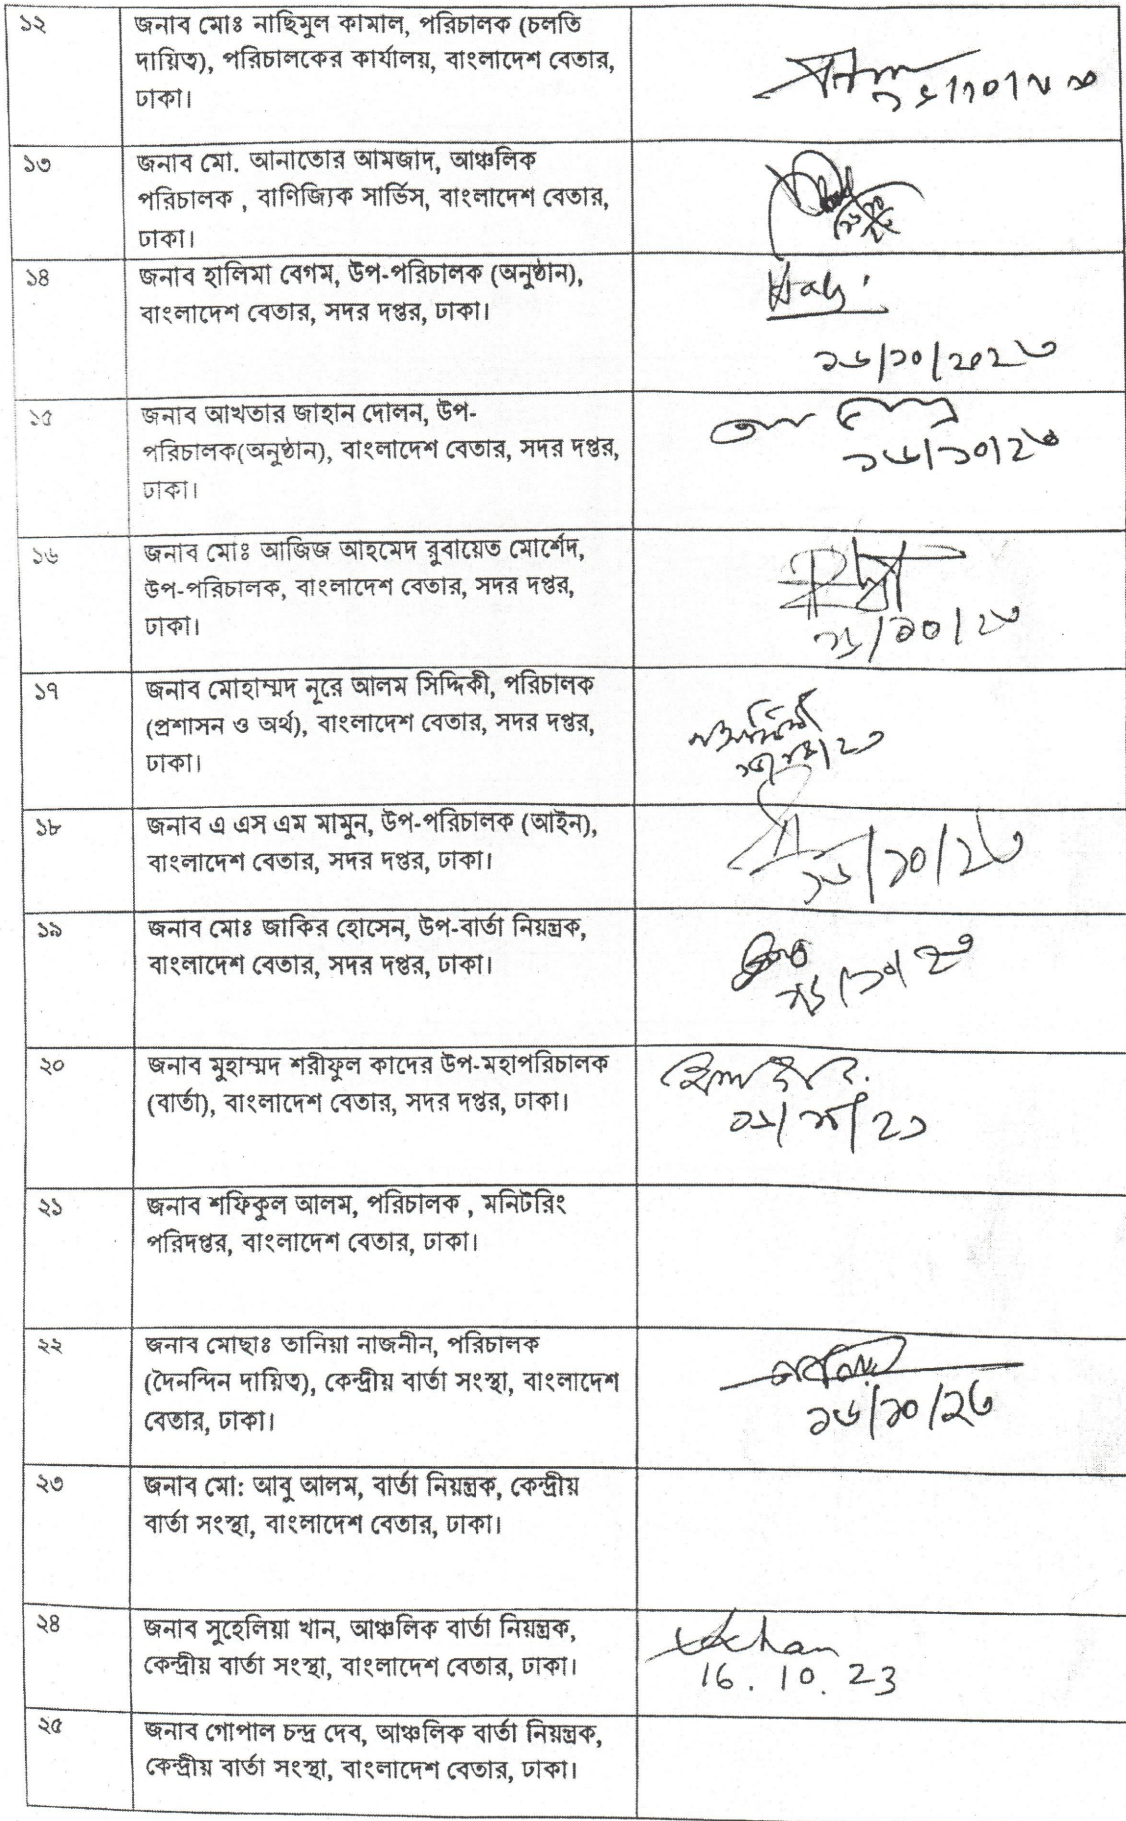 ১২
জনাব মোঃ নাছিমুল কামাল, পরিচালক (চলতি
দায়িত্ব), পরিচালকের কার্যালয়, বাংলাদেশ বেতার,
ঢাকা।
১৩
জনাব মো. আনাতোর আমজাদ, আঞ্চলিক
পরিচালক , বাণিজ্যিক সার্ভিস, বাংলাদেশ বেতার,
ঢাকা।
১৪
জনাব হালিমা বেগম, উপ-পরিচালক (অনুষ্ঠান),
বাংলাদেশ বেতার, সদর দপ্তর, ঢাকা।
১৬/১০/২০২৩
১৫
জনাব আখতার জাহান দোলন, উপ-
পরিচালক(অনুষ্ঠান), বাংলাদেশ বেতার, সদর দপ্তর,
ঢাকা।
১৬/১০/২৩
১৬
জনাব মোঃ আজিজ আহমেদ রুবায়েত মোর্শেদ,
উপ-পরিচালক, বাংলাদেশ বেতার, সদর দপ্তর,
ঢাকা।
১৬/১০/২৩
১৭
জনাব মোহাম্মদ নূরে আলম সিদ্দিকী, পরিচালক
(প্রশাসন ও অর্থ), বাংলাদেশ বেতার, সদর দপ্তর,
ঢাকা।
১৮
জনাব এ এস এম মামুন, উপ-পরিচালক (আইন),
বাংলাদেশ বেতার, সদর দপ্তর, ঢাকা।
১৬/১০/২৩
১৯
জনাব মোঃ জাকির হোসেন, উপ-বার্তা নিয়ন্ত্রক,
বাংলাদেশ বেতার, সদর দপ্তর, ঢাকা।
১৬/১০/২৩
২০
জনাব মুহাম্মদ শরীফুল কাদের উপ-মহাপরিচালক
(বার্তা), বাংলাদেশ বেতার, সদর দপ্তর, ঢাকা।
২১
জনাব শফিকুল আলম, পরিচালক , মনিটরিং
পরিদপ্তর, বাংলাদেশ বেতার, ঢাকা।
২২
জনাব মোছাঃ তানিয়া নাজনীন, পরিচালক
(দৈনন্দিন দায়িত্ব), কেন্দ্রীয় বার্তা সংস্থা, বাংলাদেশ
বেতার, ঢাকা।
১৬/১০/২৩
২৩
জনাব মো: আবু আলম, বার্তা নিয়ন্ত্রক, কেন্দ্রীয়
বার্তা সংস্থা, বাংলাদেশ বেতার, ঢাকা।
২৪
জনাব সুহেলিয়া খান, আঞ্চলিক বার্তা নিয়ন্ত্রক,
কেন্দ্রীয় বার্তা সংস্থা, বাংলাদেশ বেতার, ঢাকা।
16.10.23
২৫
জনাব গোপাল চন্দ্র দেব, আঞ্চলিক বার্তা নিয়ন্ত্রক,
কেন্দ্রীয় বার্তা সংস্থা, বাংলাদেশ বেতার, ঢাকা।